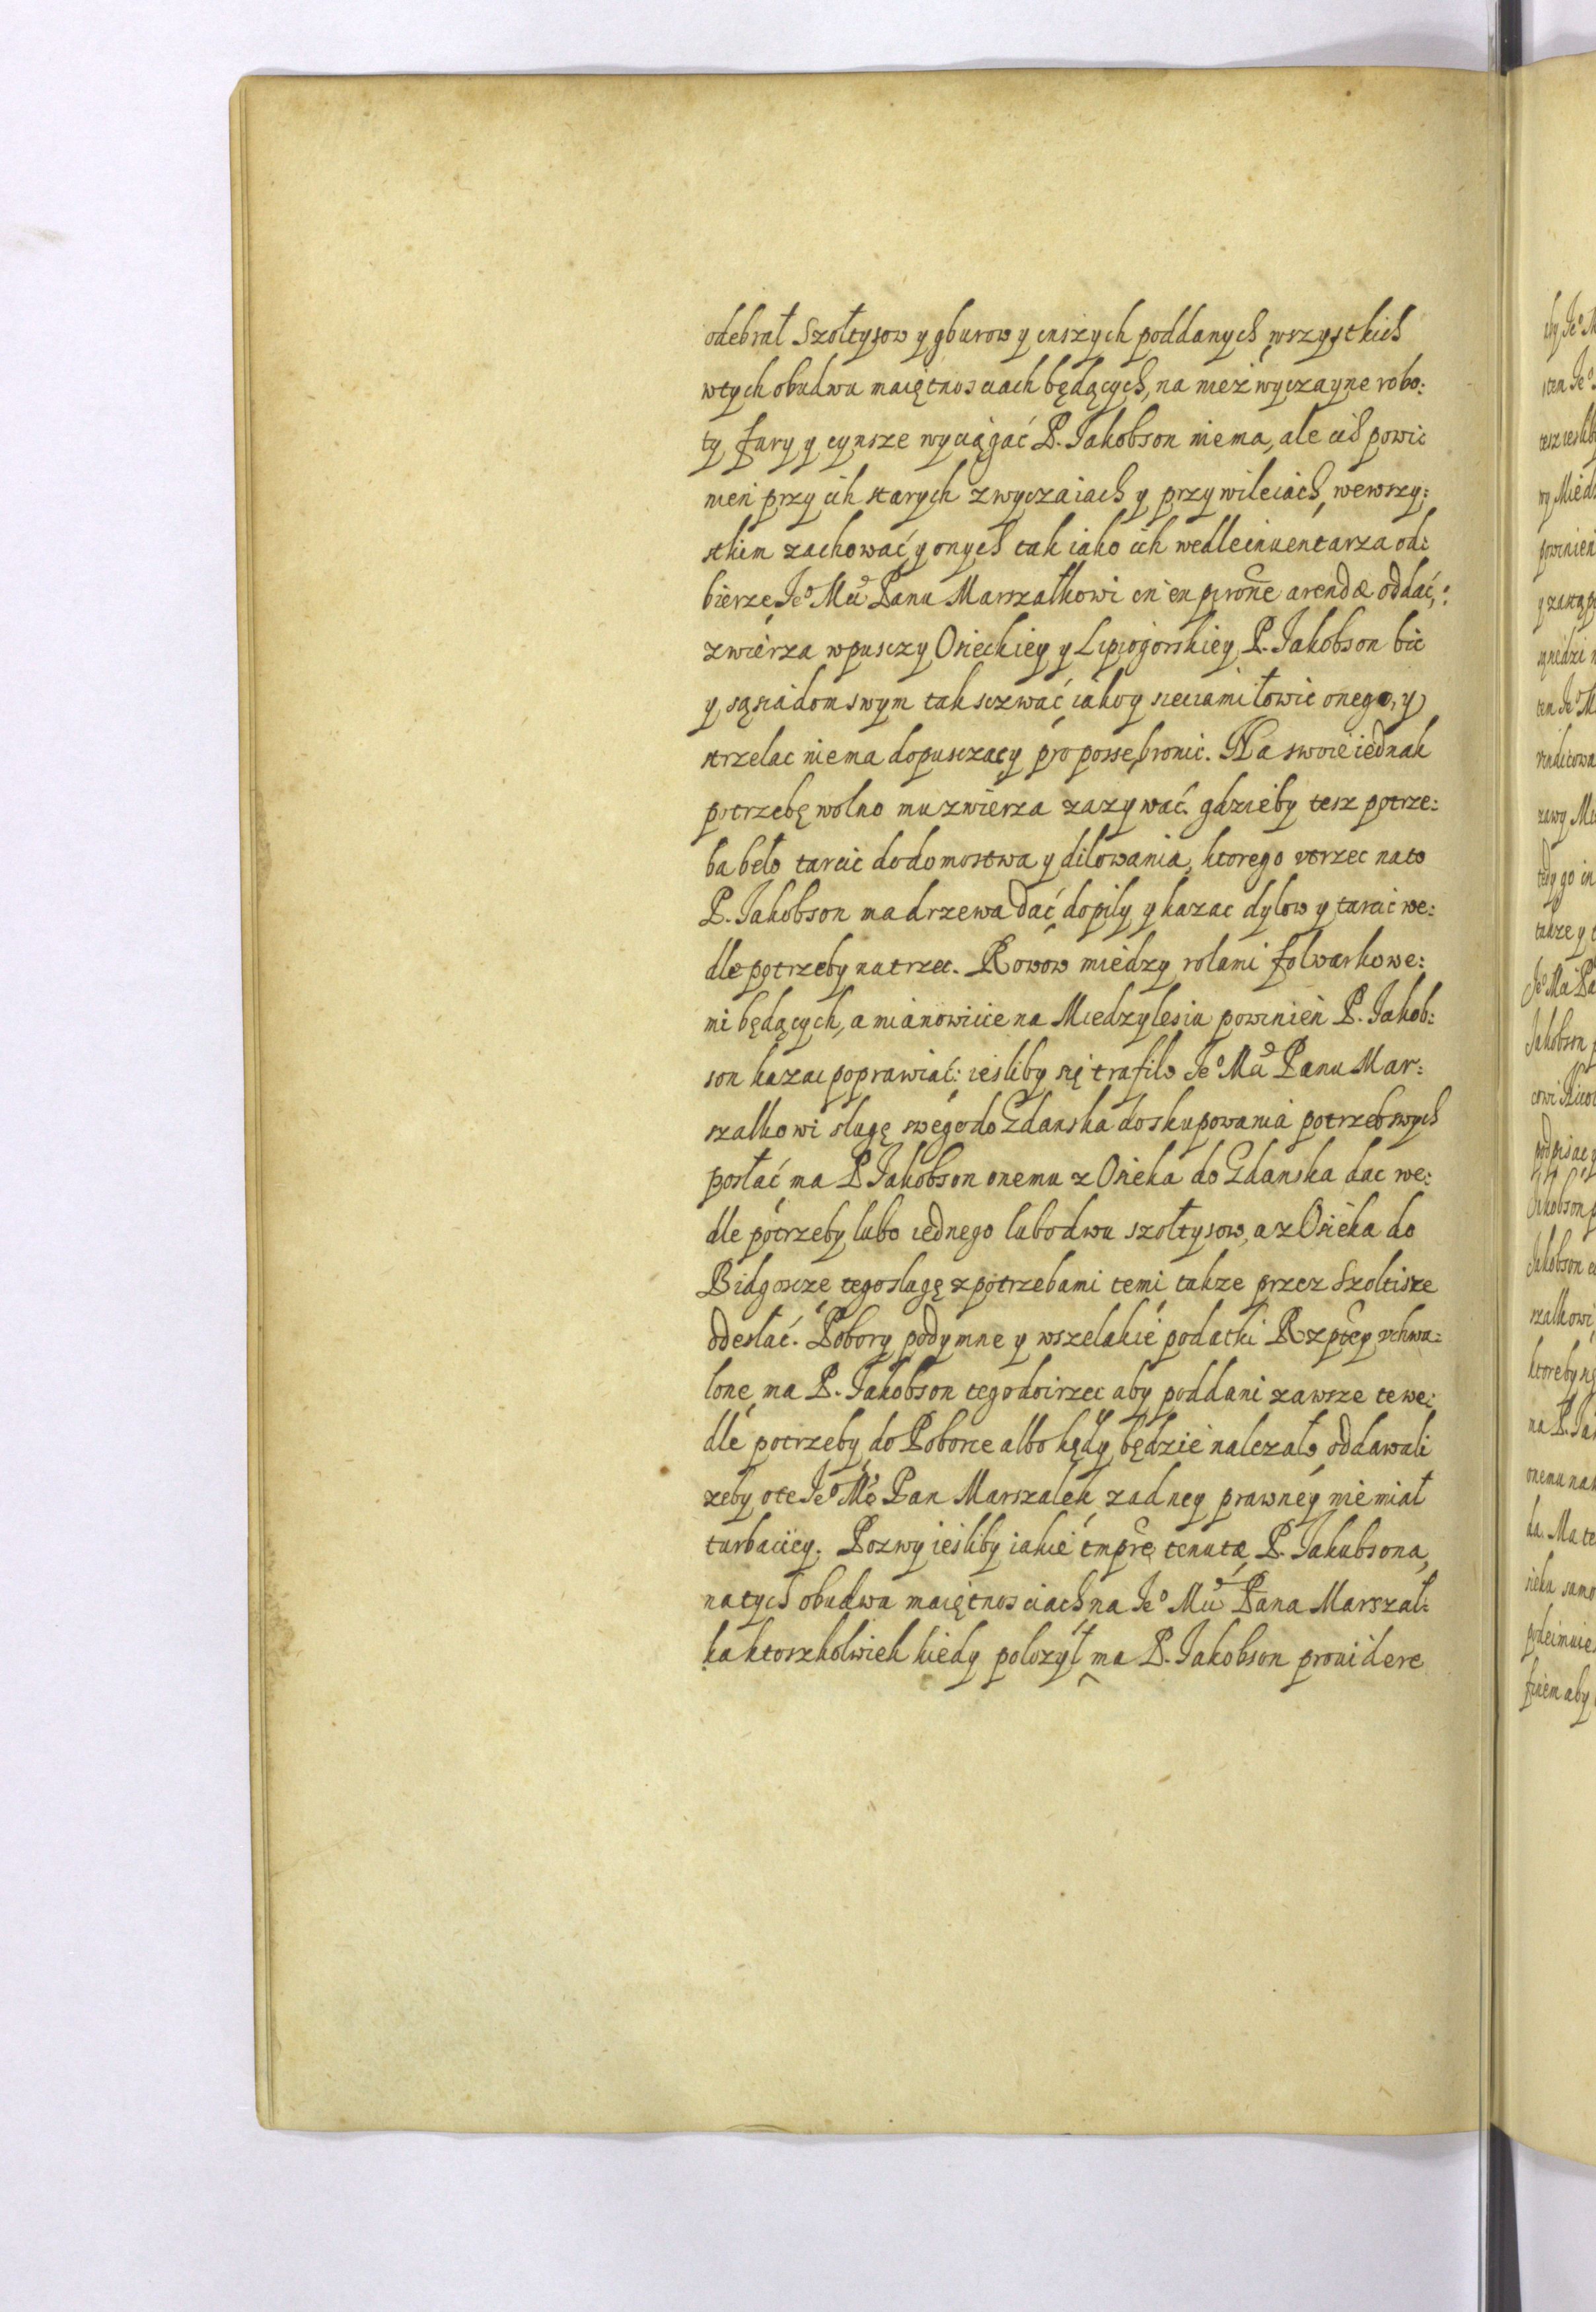 odebrał Szołtysow y gburow y inszych poddanych wszystkich
wtych obudwu maiętnosciach będących, na niezwyczayne robo:
ty fury y cynsze wyciągać P. Jakobson niema, ale ich powi:
nien przy ich starych zwyczaiach y przywileiach wewszy:
stkim zachować y onych tak iako ich wedle inuentarza od:
bierze Je⁰ Mci Panu Marszałkowi in arendæ oddać,:
zwierza wpusczy Osieckiey y Lipiogorskiey P. Jakobson bic
y sąsiadom swym tak sczwać iako y sieciami łowic onego, y
strzelac niema dopusczac y pro posse bronic. Na swoie iednak
potrzebę wolno mu zwierza zazywać. gdzieby tesz potrze:
ba beło tarcic do domostwa y dilowania, ktorego vtrzec na to
P. Jakobson ma drzewa dać do pily y kazac dylow y tarcic we:
dle potrzeby natrzec. Rowow miedzy rolami folwarkowe:
mi będących, a mianowicie na Miedzylesiu powinien P. Jakob:
son kazac poprawiać: iesliby się trafilo Je⁰ Mci Panu Mar:
szalkowi slugę swego do Gdanska do skupowania potrzeb swych
posłać ma P. Jakobson onemu z Osieka do Gdanska dac we:
dle potrzeby lubo iednego lubo dwu szołtysow, a z Osieka do
Bidgoscze tego slugę z potrzebami temi takze przez Szoltisze
odesłać. Pobory podymne y wszelakie podatki Rzptey vchwa:
lone ma P. Jakobson tego doirzec aby poddani zawsze te we:
dle potrzeby do Poborce albo kędy będzie nalezało oddawali
zeby o te Je⁰ Mć Pan Marszalek zadney prawney nie miał
turbaciey. Pozwy iesliby iakie tempore tenutæ P. Jakubsona,
na tych obudwu maiętnosciach na Je⁰ Mci Pana Marszał:
ka ktoszkolwiek kiedy polozył ma P. Jakobson prouidere